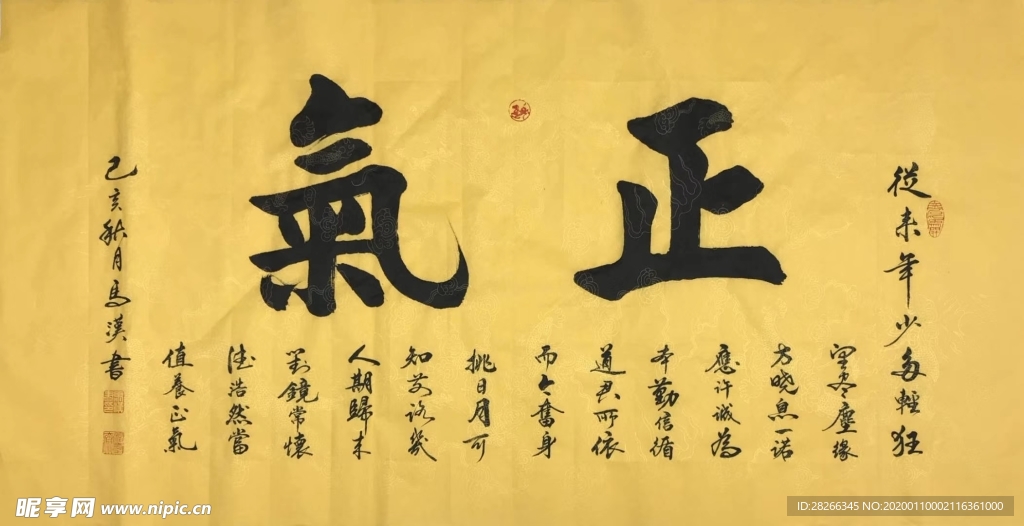 正氣
從来年少多輕狂
塵緣
方晓一诺
應许诚為
本勤信循
道君所依
而今奮身
挑日月可
知前路幾
人期歸来
對鏡常懷
德浩然當
值養正氣
己亥秋月馬漢書
昵享网 www.nipic.cn
ID:28266345 NO:20200110002116361000